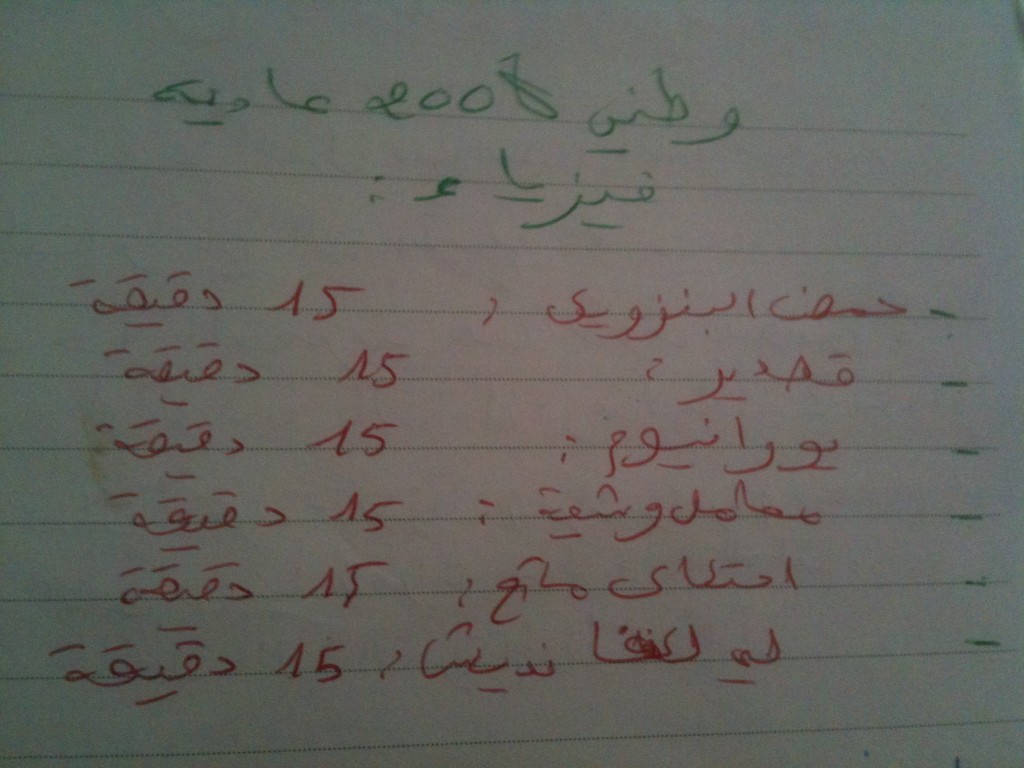 وطني 2008 عادية
فيزياء :
- حمض البنزويك : 15 دقيقة
- قصدير : 15 دقيقة
- يورانيوم : 15 دقيقة
- معامل وشيعة : 15 دقيقة
- احتكاك مائع : 15 دقيقة
- ليو نديش : 15 دقيقة